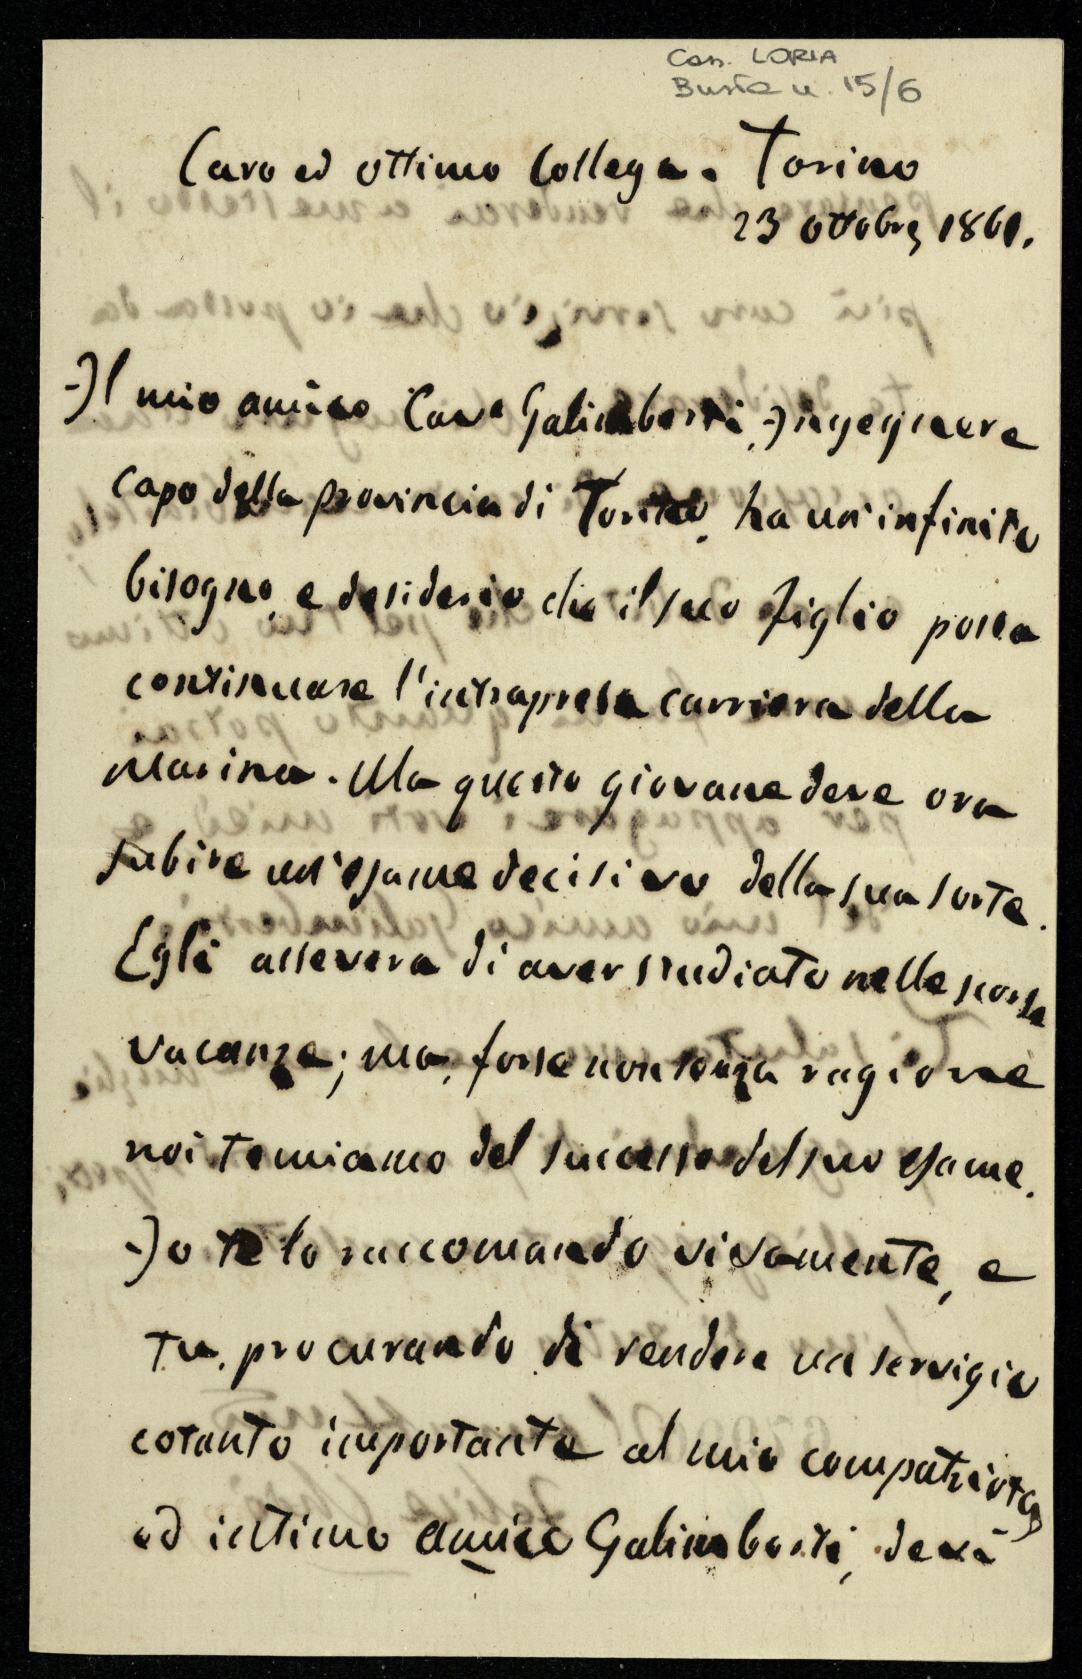 Cas. LORIA
Busta n. 15/6
Caro ed ottimo Collega. Torino
23 ottobre 1861.
Il mio amico Cave Galimberti, Ingegnere
capo della provincia di Torino, ha un'infinito
bisogno, e desiderio che il suo figlio possa
continuare l'intrapresa carriera della
Marina. Ma questo giovane deve ora
subire un'esame decisivo della sua sorte.
Egli assevera di aver studiato nelle scorse
vacanze; ma, forse non senza ragione
noi temiamo del successo del suo esame.
Io te lo raccomando vivamente, e
tu, procurando di rendere un servigio
cotanto importante al mio compatriota
ed intimo amico Galimberti, devi